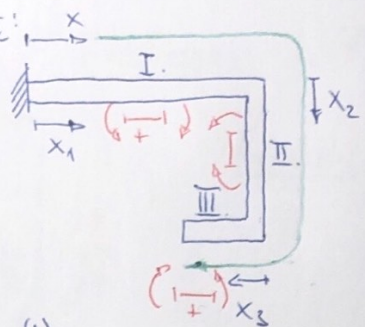 x
I.
x₁
+
x₂
II.
III
+
x₃